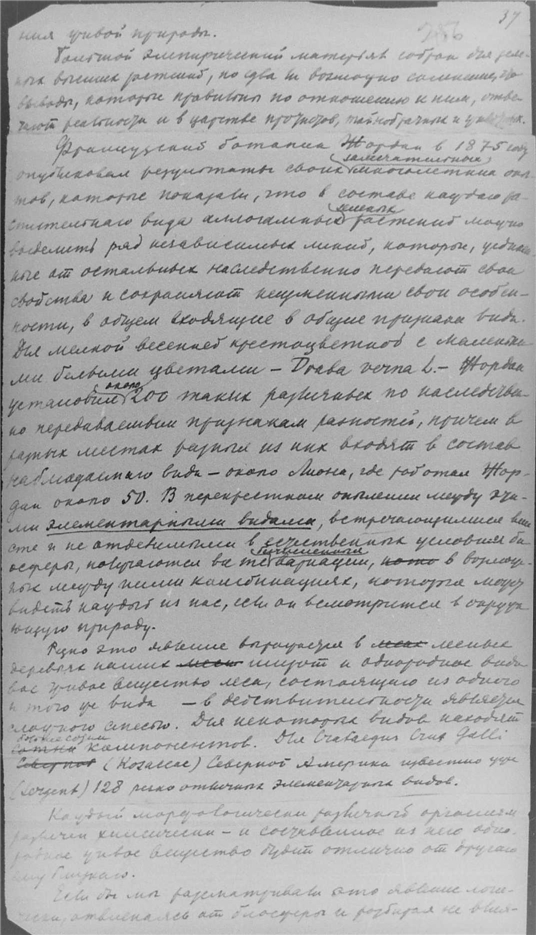 37
ния живой природы.
Большой эмпирический материал собран для зеле-
ных высших растений, но едва ли возможно сомнение, что
выводы, которые правильны по отношению к ним, отве-
чают реальности и в царстве протистов, тайнобрачных и
Французский ботаник Жордан в 1875 году
опубликовал результаты своих замечательных многолетних опы-
тов, которые показали, что в составе каждого ра-
стительного вида аллогамных растений можно
выделить ряд независимых линий, которые,
ные от остальных наследственно передают свои
свойства и сохраняют неизменными свои особен-
ности, в общем входящие в общие признаки вида.
Для мелкой весенней крестоцветной с маленьки-
ми белыми цветами — Draba verna L. — Жордан
установил около 200 таких различных по наследствен-
но передаваемым признакам разностей, причем в
разных местах разные из них входят в состав
наблюдаемого вида — около Лиона, где работал Жор-
дан около 50. В перекрестном опылении между эти-
ми элементарными видами, встречающимися вме-
сте и не отделимыми в естественных условиях би-
осферы, получаются вариации, в
ных между ними комбинациях, которые может
видеть каждый из нас, если он всмотрится в окруж-
ающую природу.
Резко это явление выражается в лесных
деревьях наших широт и однородное на вид
живое вещество леса, состоящего из одного
и того же вида — в действительности является
смесью. Для некоторых видов находят
компонентов. Для Crataegus Crus Galli
(Rosaceae) Северной Америки известно уже
128 резко отличных элементарных видов.
Каждый морфологически различный организм
различен химически — и составленное из него одно-
родное живое вещество будет отлично от другого
ему близкого.
Если бы мы рассматривали это явление логи-
чески, отвлекаясь от биосферы и разбирая не